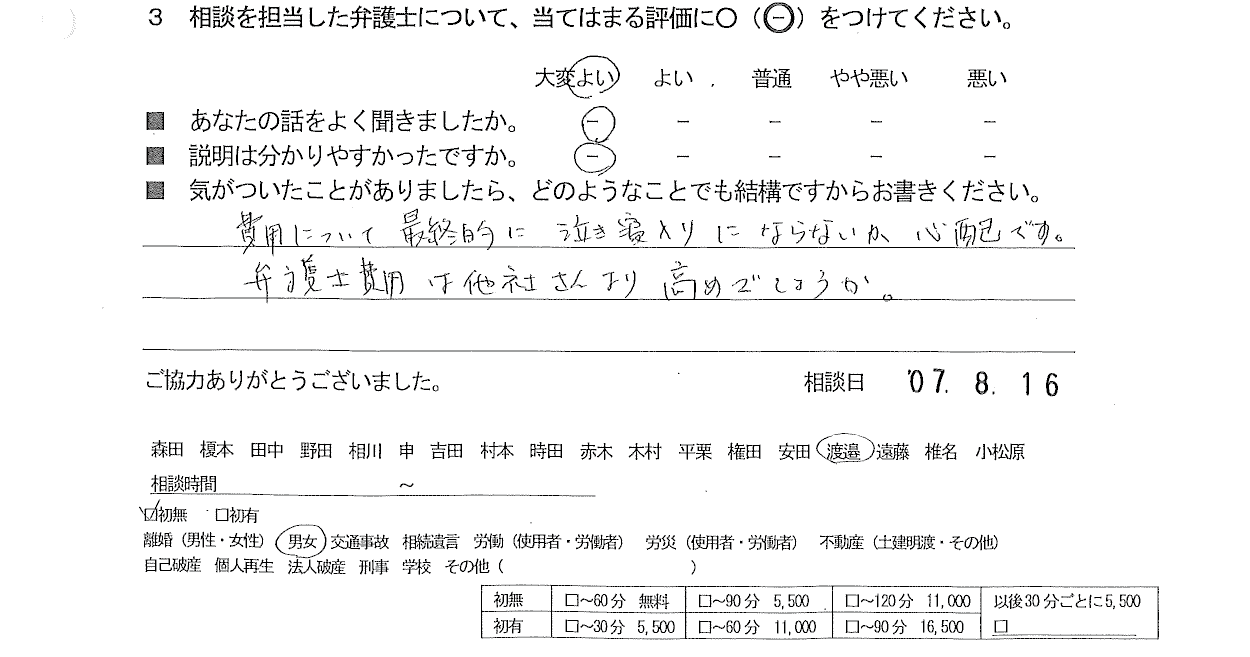 3 相談を担当した弁護士について、当てはまる評価に○(㊀)をつけてください。
大変よい よい 普通 やや悪い 悪い
■ あなたの話をよく聞きましたか。 − − − − −
■ 説明は分かりやすかったですか。 − − − − −
■ 気がついたことがありましたら、どのようなことでも結構ですからお書きください。
費用について最終的に泣き寝入りにならないか、心配です。
弁護士費用は他社さんより高めでしょうか。
ご協力ありがとうございました。 相談日 '07. 8. 16
森田 榎本 田中 野田 相川 申 吉田 村本 時田 赤木 木村 平栗 権田 安田 渡邉 遠藤 椎名 小松原
相談時間 〜
☑初無 □初有
離婚(男性・女性) 男女 交通事故 相続遺言 労働(使用者・労働者) 労災(使用者・労働者) 不動産(土建明渡・その他)
自己破産 個人再生 法人破産 刑事 学校 その他( )
初無 □〜60分 無料 □〜90分 5,500 □〜120分 11,000 以後30分ごとに5,500
初有 □〜30分 5,500 □〜60分 11,000 □〜90分 16,500 □